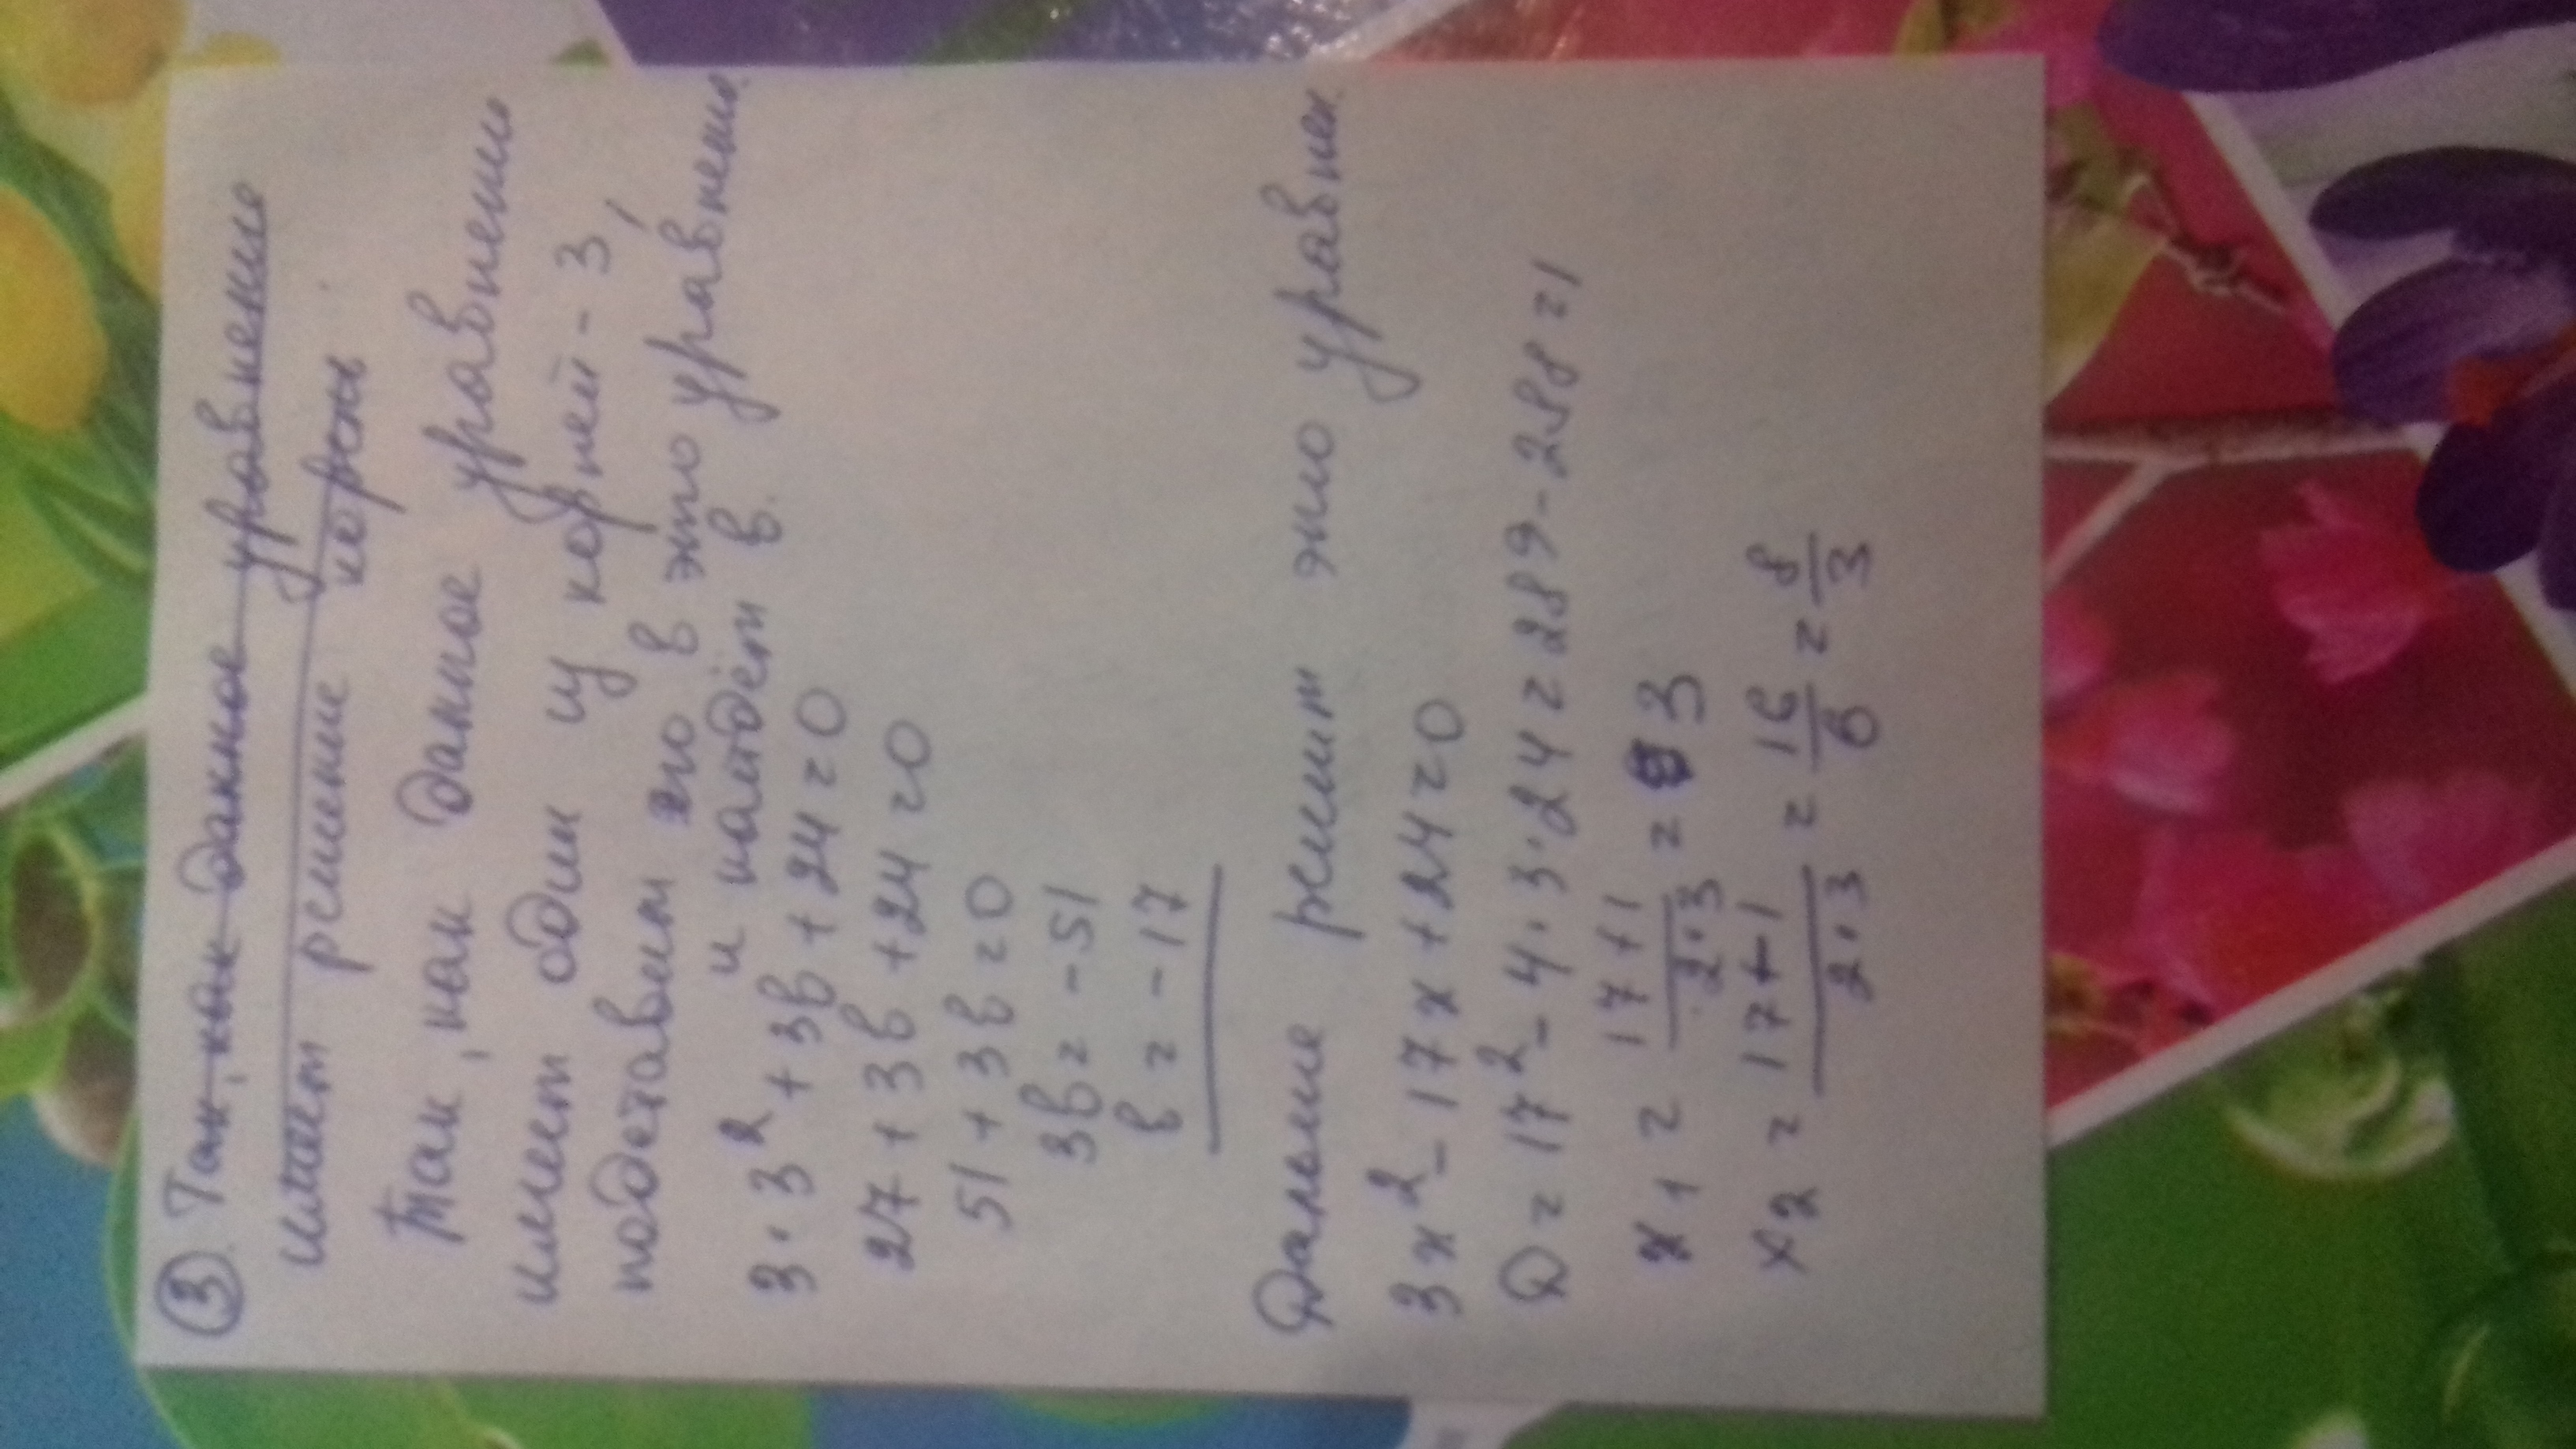 ③ Так, как данное уравнение
имеет решение корень.
Так, как данное уравнению
имеет один из корней - 3,
подставим его в это уравнению
и найдём в.
3·3² + 3в + 24 = 0
27 + 3в + 24 = 0
51 + 3в = 0
3в = -51
в = -17
Дальше решим это уравнен.
3x² - 17x + 24 = 0
D = 17² - 4·3·24 = 289 - 288 = 1
x1 = 17+1/2·3 = 3
x2 = 17-1/2·3 = 16/6 = 8/3